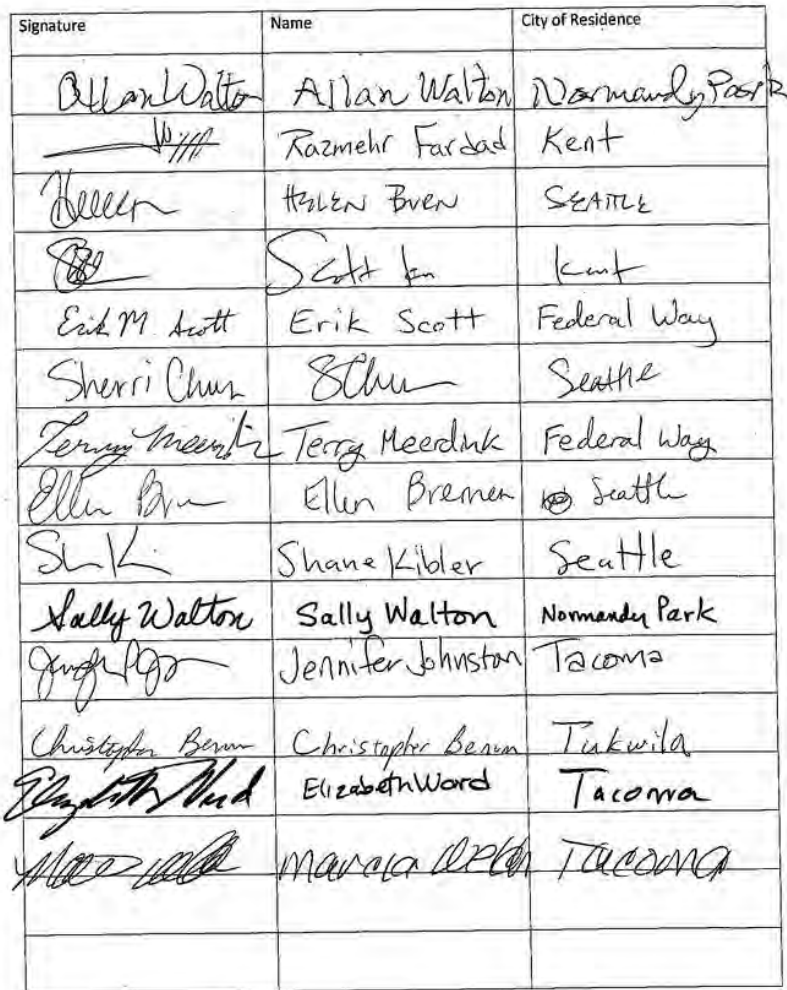 Signature Name City of Residence
Allan Walton Allan Walton Normandy Park
Razmehr Fardad Kent
Helen HELEN BUEN SEATTLE
Scott Kent
Erik M Scott Erik Scott Federal Way
Sherri Chun SChu Seattle
Terry Meerdink Terry Meerdink Federal Way
Ellen Ellen Bremen Seattle
Shane Kibler Seattle
Sally Walton Sally Walton Normandy Park
Jennifer Johnston Tacoma
Christopher Christopher Tukwila
Elizabeth Word Elizabeth Word Tacoma
Marcia Tacoma